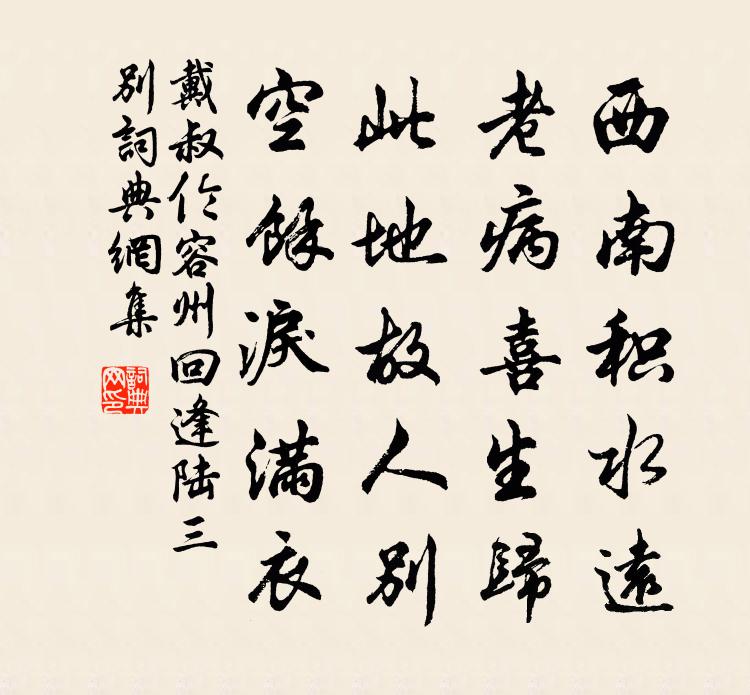 西南积水远
老病喜生歸
此地故人别
空餘淚滿衣
戴叔伦容州回逢陆三
别詞典網集
詞典
网印